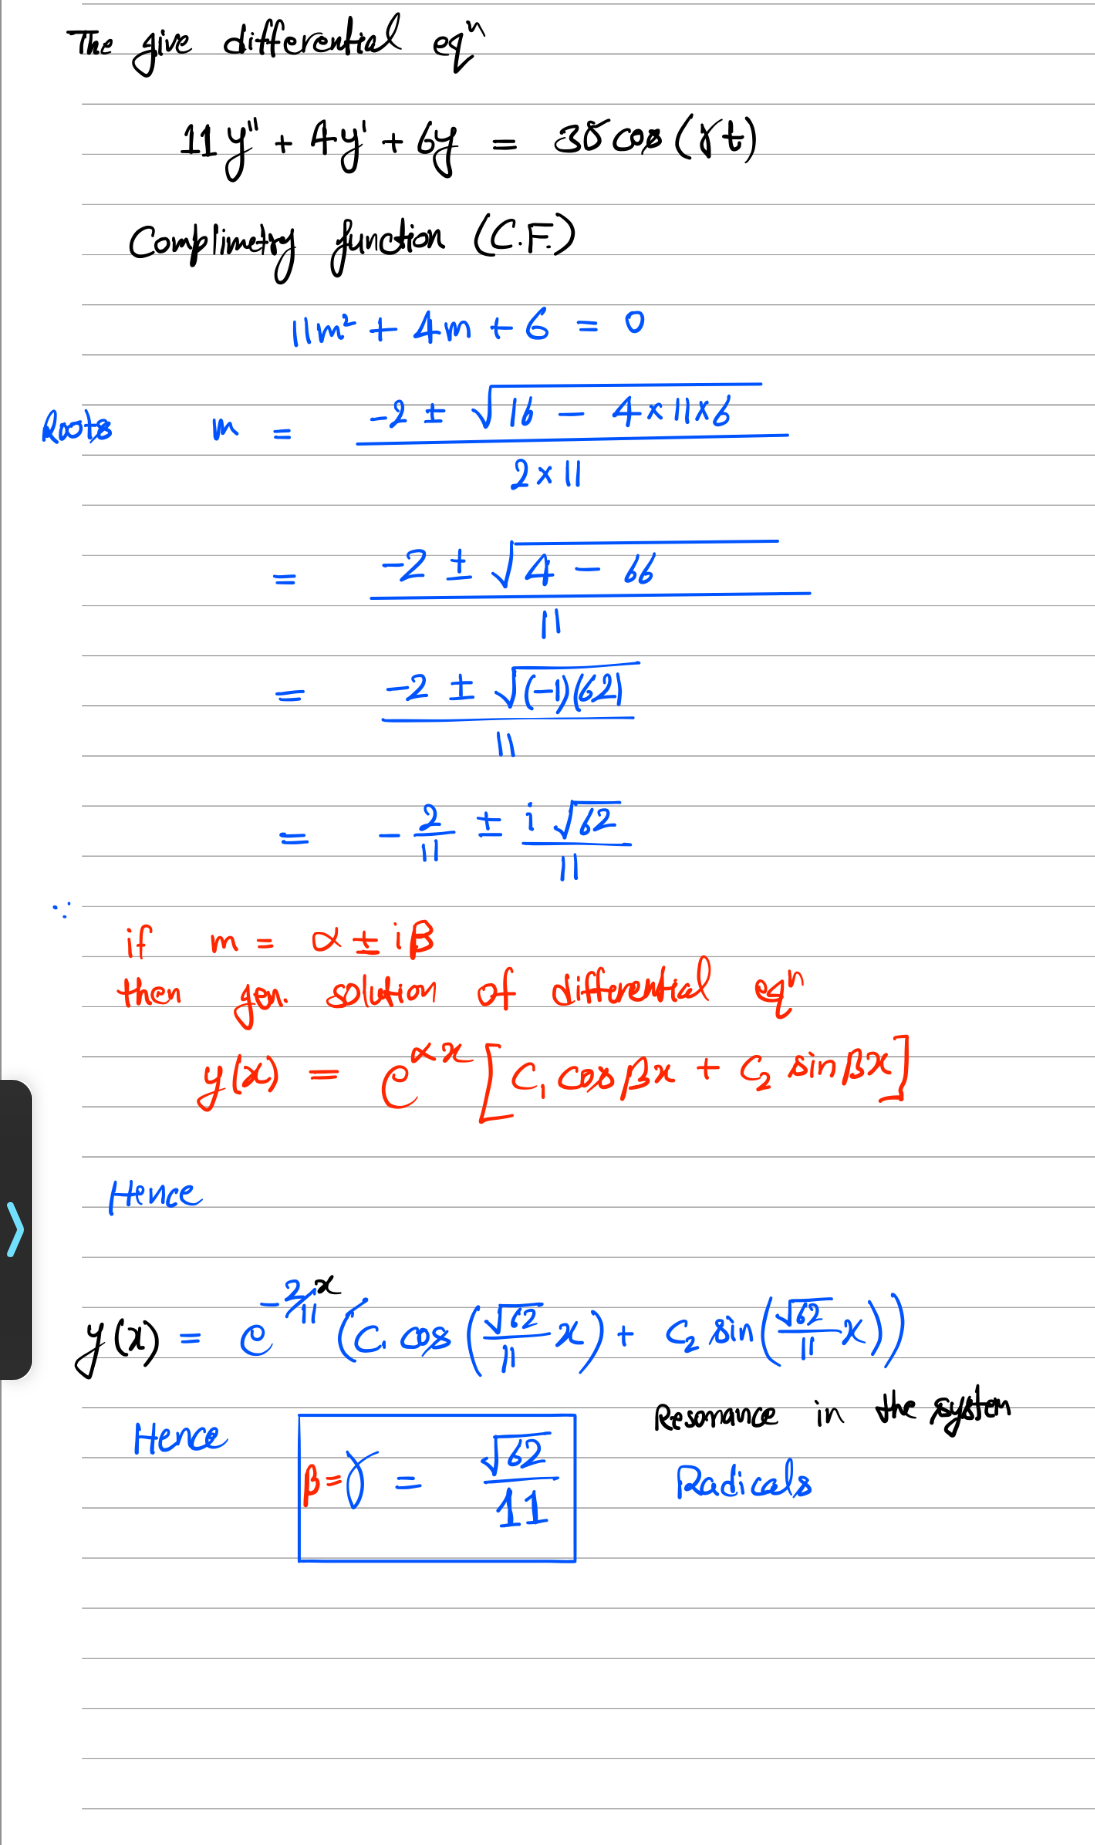 The give differential eqⁿ
11y'' + 4y' + 6y = 35 cos(γt)
Complimetry function (C.F.)
11m² + 4m + 6 = 0
Roots m = (-2 ± √(16 - 4×11×6)) / (2×11)
= (-2 ± √(4 - 66)) / 11
= (-2 ± √((-1)(62))) / 11
= -2/11 ± i√62/11
∵
if m = α ± iβ
then gen. solution of differential eqⁿ
y(x) = e^{αx} [C₁ cosβx + C₂ sinβx]
Hence
y(x) = e^{-2/11 x} (C₁ cos(√62/11 x) + C₂ sin(√62/11 x))
Resonance in the system
Hence β=γ = √62/11 Radicals